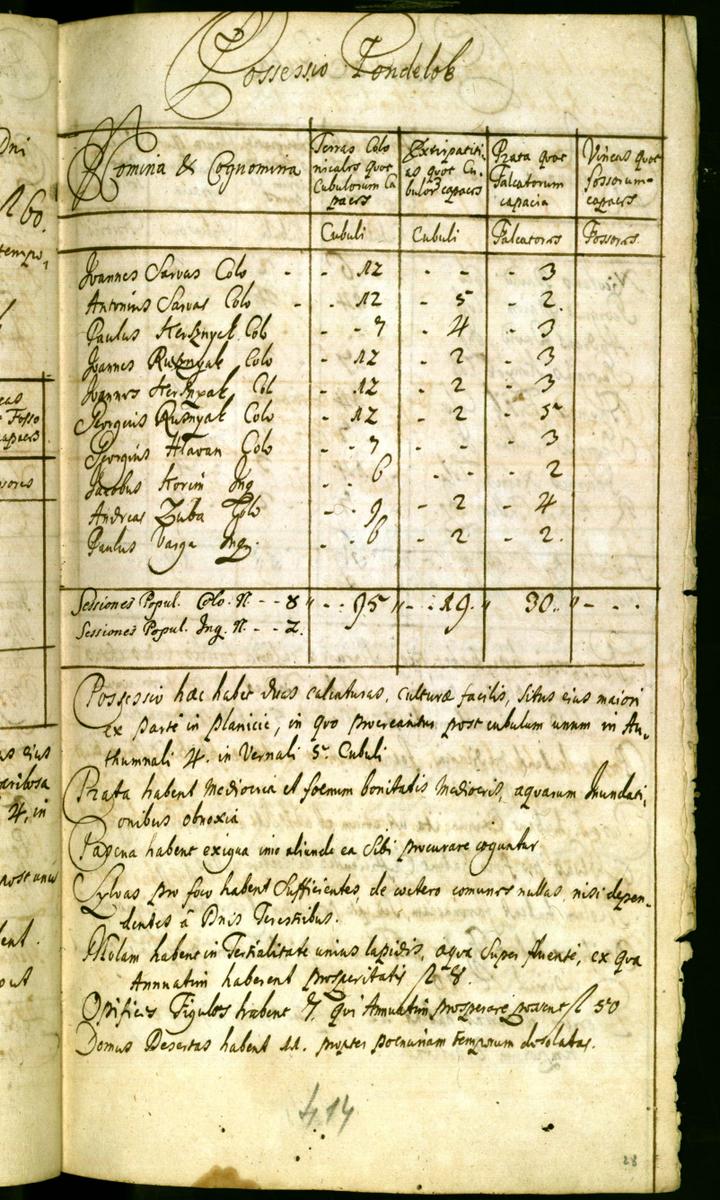 Possessio Pondelok
Nomina & Cognomina
Terras Colo
nicales quot
Cubulorum Ca
paces
Extirpatiti:
as quot Cu:
bulor capaces
Prata quot
Falcatorum
capacia
Vineas quot
fossorum
capaces
Cubuli Cubuli Falcatores Fossores
Joannes Sarvas Colo - - 12 - - - 3
Antonius Sarvas Colo - - 12 - 5 - 2.
Paulus Col - - 7 - 4 - 3
Joannes Rusznyak Colo - 12 - 2 - 3
Joannes Col - 12 - 2 - 3
Georgius Rusnyak Colo - 12 - 2 - 5
Georgius Hlavan Colo - - 7 - - - 3
Jacobus Korim Inq - - 6 - - - 2
Andreas Zuba Colo - - 9 - 2 - 4
Paulus Varga Inq. - - 6 - 2 - 2.
Sessiones Popul. Colo. N. - - 8 " - - 95 " - - 19. " 30. " - - -
Sessiones Popul. Inq. N. - - 2.
Possessio haec habet duas calcaturas, culturae facilis, situs eius maiori
ex parte in planicie, in quo procreantur post cubulum unum in Au,,
thumnali 4. in Vernali 5. Cubuli
Prata habent mediocria et foenum bonitatis mediocris, aquarum Inundati,
onibus obnoxia
Pascua habent exigua imo aliunde ea Sibi procurare coguntur
Sylvas pro foco habent Sufficientes, de coetero comunes nullas, nisi depen,,
dentes à Dnis Terestribus.
Molam habent in Territalitate unius lapidis, aqua super fluente, ex qua
Annuatim haberent prosperitatis fl 8.
Opifices Figulos habent 7. qui Annuatim prosperare possent fl 50
Domus Desertas habent 11. propter poenuriam temporum desolatas.
414
28
Dni
160.
tempo,
4, in